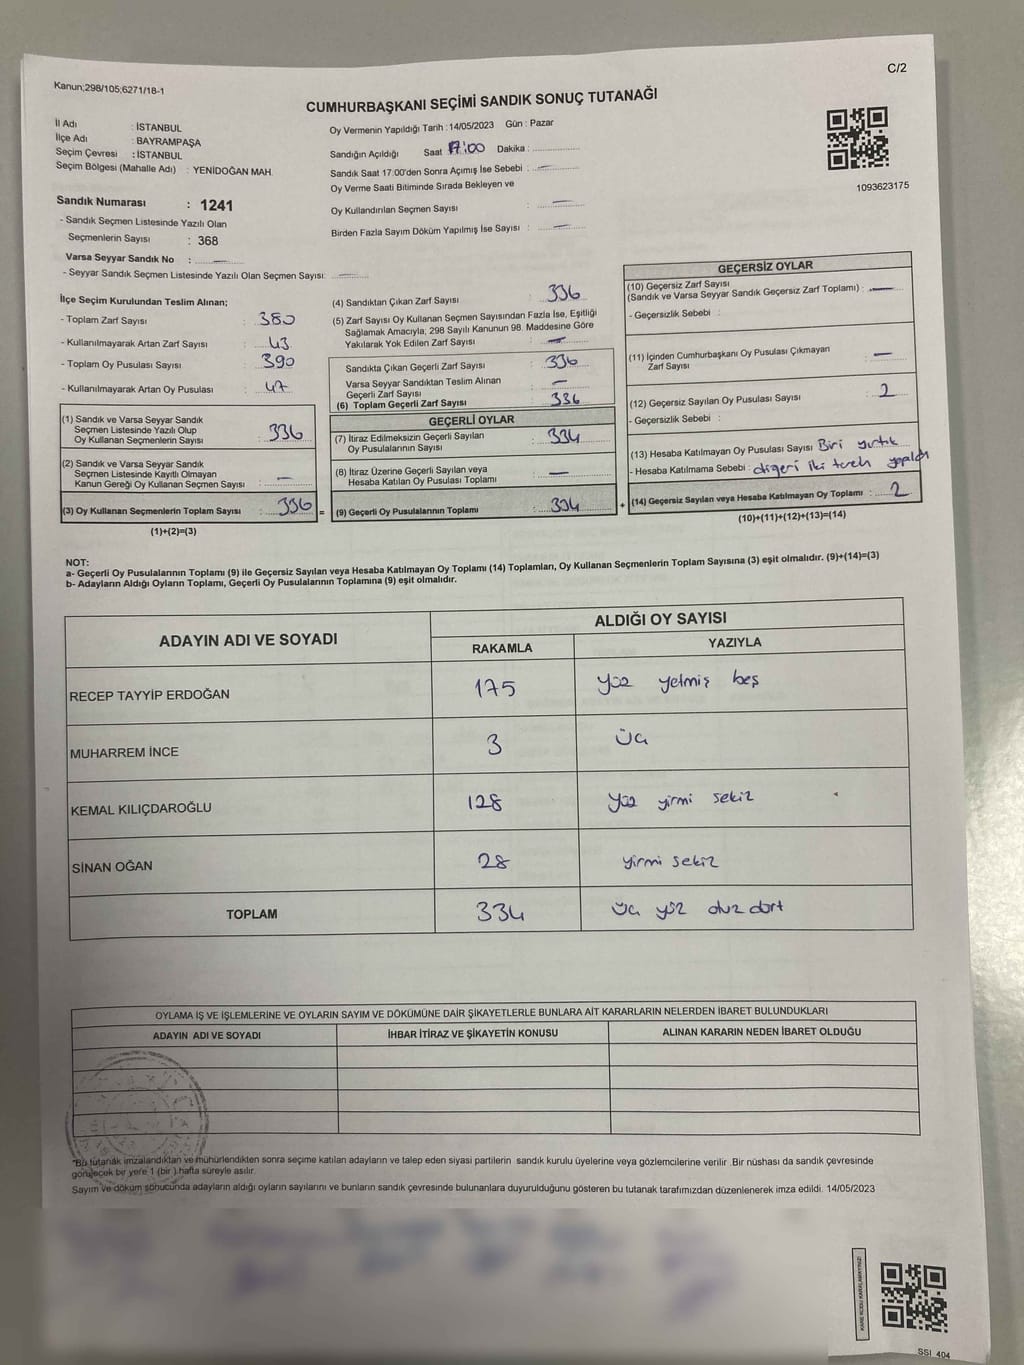 C/2
Kanun;298/105;6271/18-1
CUMHURBAŞKANI SEÇİMİ SANDIK SONUÇ TUTANAĞI
İl Adı : İSTANBUL
İlçe Adı : BAYRAMPAŞA
Seçim Çevresi : İSTANBUL
Seçim Bölgesi (Mahalle Adı) : YENİDOĞAN MAH.
Sandık Numarası : 1241
- Sandık Seçmen Listesinde Yazılı Olan
Seçmenlerin Sayısı : 368
Varsa Seyyar Sandık No : —
- Seyyar Sandık Seçmen Listesinde Yazılı Olan Seçmen Sayısı: —
Oy Vermenin Yapıldığı Tarih :14/05/2023 Gün : Pazar
Sandığın Açıldığı Saat 17:00 Dakika :
Sandık Saat 17:00'den Sonra Açımış İse Sebebi : —
Oy Verme Saati Bitiminde Sırada Bekleyen ve
Oy Kullandırılan Seçmen Sayısı : —
Birden Fazla Sayım Döküm Yapılmış İse Sayısı : —
1093623175
İlçe Seçim Kurulundan Teslim Alınan;
- Toplam Zarf Sayısı : 380
- Kullanılmayarak Artan Zarf Sayısı : 43
- Toplam Oy Pusulası Sayısı : 390
- Kullanılmayarak Artan Oy Pusulası : 47
(1) Sandık ve Varsa Seyyar Sandık
Seçmen Listesinde Yazılı Olup
Oy Kullanan Seçmenlerin Sayısı : 336
(2) Sandık ve Varsa Seyyar Sandık
Seçmen Listesinde Kayıtlı Olmayan
Kanun Gereği Oy Kullanan Seçmen Sayısı : —
(3) Oy Kullanan Seçmenlerin Toplam Sayısı : 336 =
(1)+(2)=(3)
(4) Sandıktan Çıkan Zarf Sayısı : 336
(5) Zarf Sayısı Oy Kullanan Seçmen Sayısından Fazla İse, Eşitliği
Sağlamak Amacıyla, 298 Sayılı Kanunun 98. Maddesine Göre
Yakılarak Yok Edilen Zarf Sayısı : —
Sandıkta Çıkan Geçerli Zarf Sayısı : 336
Varsa Seyyar Sandıktan Teslim Alınan
Geçerli Zarf Sayısı : —
(6) Toplam Geçerli Zarf Sayısı : 336
GEÇERLİ OYLAR
(7) İtiraz Edilmeksizin Geçerli Sayılan
Oy Pusulalarının Sayısı : 334
(8) İtiraz Üzerine Geçerli Sayılan veya
Hesaba Katılan Oy Pusulası Toplamı : —
(9) Geçerli Oy Pusulalarının Toplamı : 334 +
GEÇERSİZ OYLAR
(10) Geçersiz Zarf Sayısı
(Sandık ve Varsa Seyyar Sandık Geçersiz Zarf Toplamı) : —
- Geçersizlik Sebebi :
(11) İçinden Cumhurbaşkanı Oy Pusulası Çıkmayan
Zarf Sayısı : —
(12) Geçersiz Sayılan Oy Pusulası Sayısı : 2
- Geçersizlik Sebebi :
(13) Hesaba Katılmayan Oy Pusulası Sayısı Biri yırtık
- Hesaba Katılmama Sebebi : diğeri iki tercih yapıldı
(14) Geçersiz Sayılan veya Hesaba Katılmayan Oy Toplamı : 2
(10)+(11)+(12)+(13)=(14)
NOT:
a- Geçerli Oy Pusulalarının Toplamı (9) ile Geçersiz Sayılan veya Hesaba Katılmayan Oy Toplamı (14) Toplamları, Oy Kullanan Seçmenlerin Toplam Sayısına (3) eşit olmalıdır. (9)+(14)=(3)
b- Adayların Aldığı Oyların Toplamı, Geçerli Oy Pusulalarının Toplamına (9) eşit olmalıdır.
ADAYIN ADI VE SOYADI ALDIĞI OY SAYISI
RAKAMLA YAZIYLA
RECEP TAYYİP ERDOĞAN 175 yüz yetmiş beş
MUHARREM İNCE 3 üç
KEMAL KILIÇDAROĞLU 128 yüz yirmi sekiz
SİNAN OĞAN 28 yirmi sekiz
TOPLAM 334 üç yüz otuz dört
OYLAMA İŞ VE İŞLEMLERİNE VE OYLARIN SAYIM VE DÖKÜMÜNE DAİR ŞİKAYETLERLE BUNLARA AİT KARARLARIN NELERDEN İBARET BULUNDUKLARI
ADAYIN ADI VE SOYADI İHBAR İTİRAZ VE ŞİKAYETİN KONUSU ALINAN KARARIN NEDEN İBARET OLDUĞU
*Bu tutanak imzalandıktan ve mühürlendikten sonra seçime katılan adayların ve talep eden siyasi partilerin sandık kurulu üyelerine veya gözlemcilerine verilir .Bir nüshası da sandık çevresinde
görülecek bir yere 1 (bir ) hafta süreyle asılır.
Sayım ve döküm sonucunda adayların aldığı oyların sayılarını ve bunların sandık çevresinde bulunanlara duyurulduğunu gösteren bu tutanak tarafımızdan düzenlenerek imza edildi. 14/05/2023
KARE KODU KARALAMAYINIZ!
SSI_404